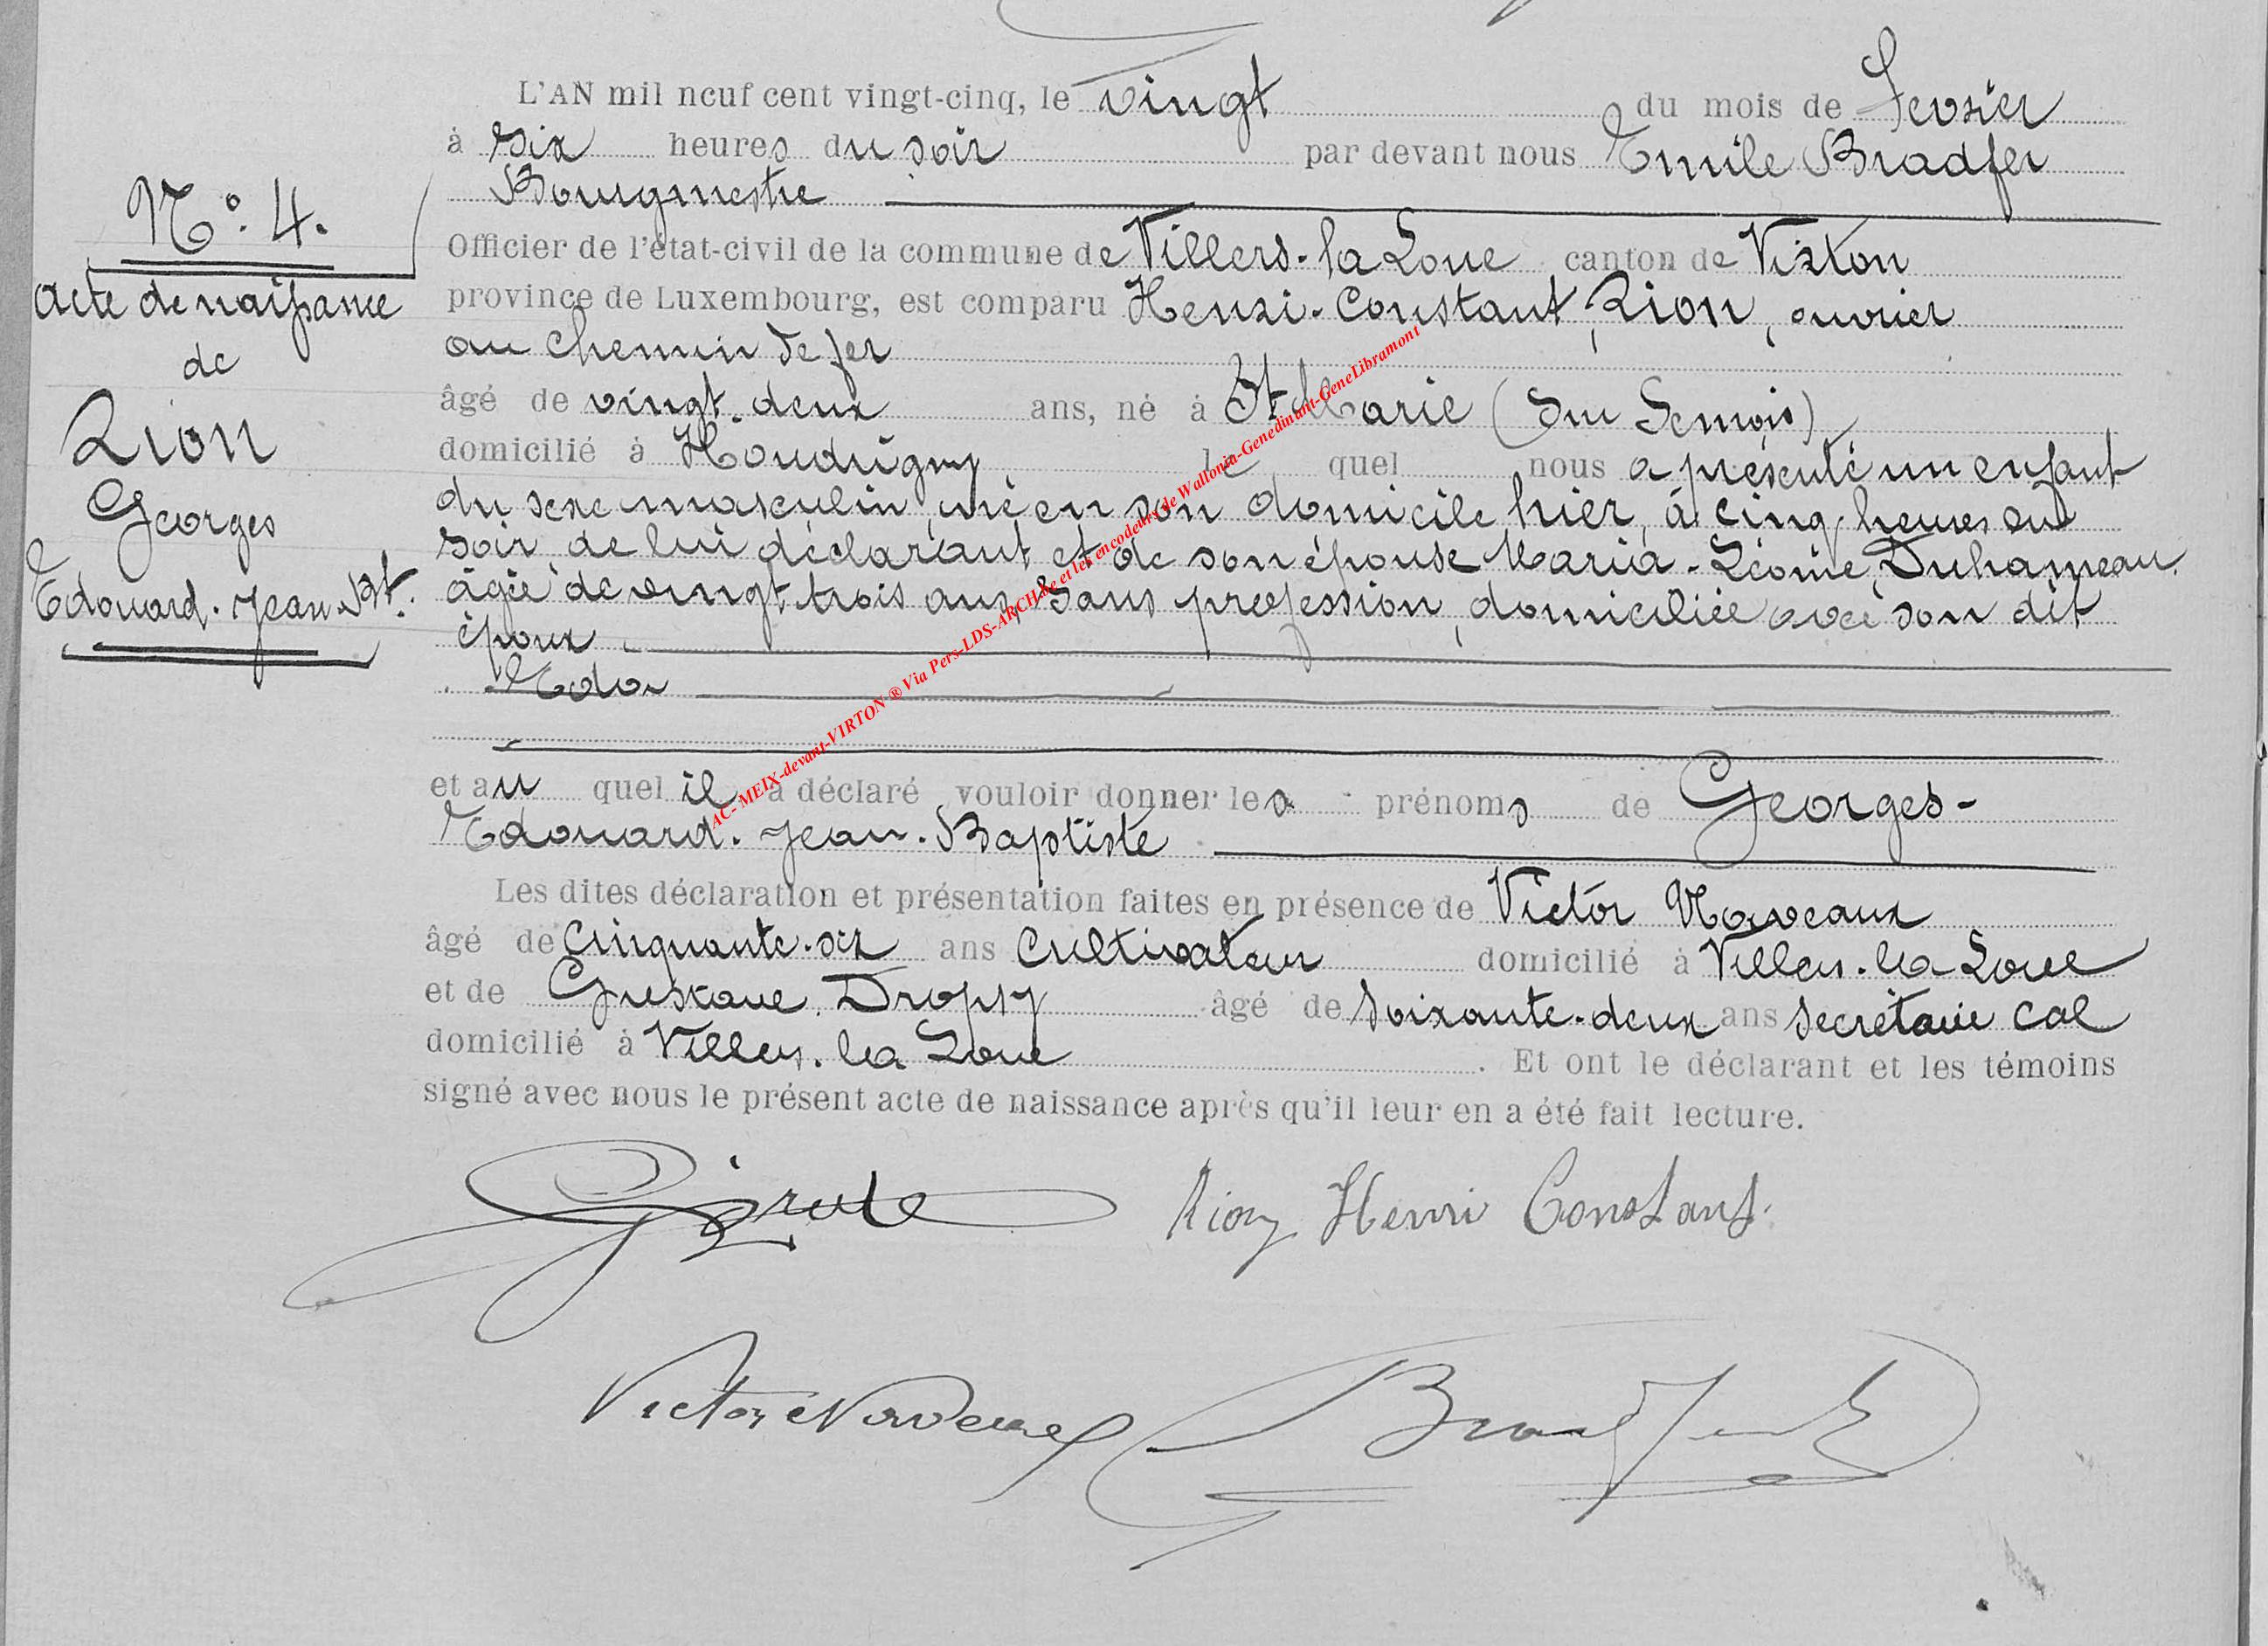 L'AN mil neuf cent vingt-cinq, le vingt du mois de Fevrier
à six heures du soir par devant nous Emile Bradfer
Bourgmestre
Officier de l'état-civil de la commune de Villers-la Loue canton de Virton
province de Luxembourg, est comparu Henri-Constant, Rion, ouvrier
au chemin de fer
âgé de vingt-deux ans, né à St Marie (sur Semois)
domicilié à Houdrigny le quel nous a présenté un enfant
du sexe masculin, né en son domicile hier, à cinq heures du
soir de lui déclarant et de son épouse Maria-Léonie, Duhameau
âgée de vingt trois ans, sans profession, domiciliée avec son dit
époux
et au quel il a déclaré vouloir donner les prénoms de Georges-
Edouard-Jean-Baptiste
Les dites déclaration et présentation faites en présence de Victor Naveaux
âgé de cinquante-six ans cultivateur domicilié à Villers-la-Loue
et de Gustave Dropsy âgé de soixante-deux ans secrétaire cal
domicilié à Villers-la Loue. Et ont le déclarant et les témoins
signé avec nous le présent acte de naissance après qu'il leur en a été fait lecture.
N°: 4.
Acte de naissance
de
Rion
Georges
Edouard-Jean Bt.
Rion Henri Constant.
Victor Naveaux
Bradfer
AC- MEIX-devant-VIRTON ® Via Pers-LDS-ARCH.be et les encodeurs de Wallonia-Genedinant-GeneLibramont